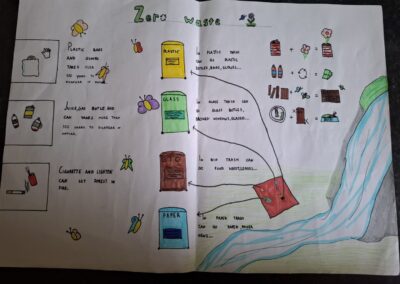 Zero waste
PLASTIC BAGS
AND GLOVES
TAKES OVER
YEARS TO
JUICE, GAS BOTTLE AND
CAN TAKES MORE THAN
YEARS TO DISAPPEAR IN
CIGARETTE AND LIGHTER
CAN SET FOREST IN
FIRE.
PLASTIC
GLASS
BIO
PAPER
IN PLASTIC TRASH
CAN GO PLASTIC
BOTTLES, BAGS, GLOVES...
IN GLASS TRASH CAN
GO GLASS BOTTLES,
BROKEN WINDOWS, GLASSES...
IN BIO TRASH CAN
GO FOOD WASTE, LEAVES...
IN PAPER TRASH
CAN GO PAPER, PAPER